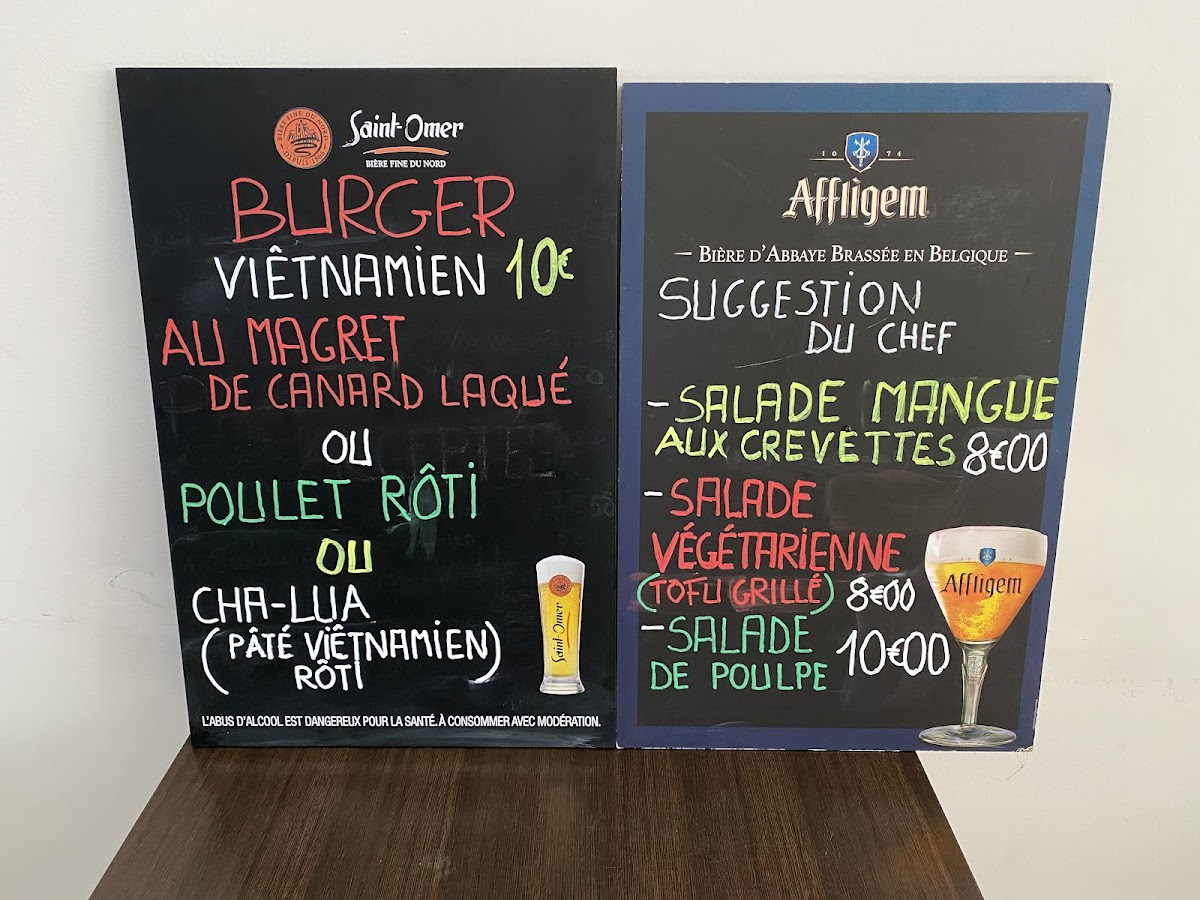 BIÈRE FINE DU NORD
DEPUIS 1866
Saint-Omer
BIÈRE FINE DU NORD
BURGER
VIÊTNAMIEN 10€
AU MAGRET
DE CANARD LAQUÉ
OU
POULET RÔTI
OU
CHA-LUA
(PÂTÉ VIÊTNAMIEN)
RÔTI
Saint-Omer
L'ABUS D'ALCOOL EST DANGEREUX POUR LA SANTÉ. À CONSOMMER AVEC MODÉRATION.
1074
Affligem
BIÈRE D'ABBAYE BRASSÉE EN BELGIQUE
SUGGESTION
DU CHEF
- SALADE MANGUE
AUX CREVETTES 8€00
- SALADE
VÉGÉTARIENNE
(TOFU GRILLÉ) 8€00
- SALADE
DE POULPE 10€00
Affligem